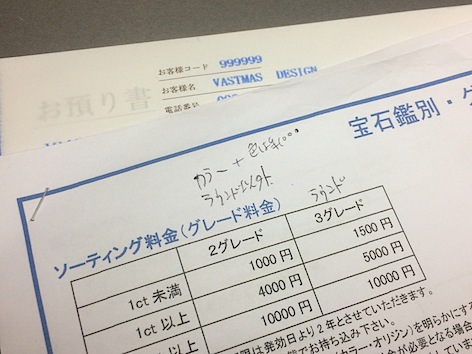 お客様コード 999999
お預り書
お客様名 VASTMAS DESIGN
電話番号
宝石鑑別・グ
カラー+
ラウンド以外
ラウンド
ソーティング料金(グレード料金)
2グレード 3グレード
1ct 未満 1000 円 1500 円
1ct 以上 4000 円 5000 円
以上 10000 円 10000 円
限は発効日より2年とさせていただきます。
でお持ち込み下さい。
ラー・オリジン)を明らかにす
が必要となる場合